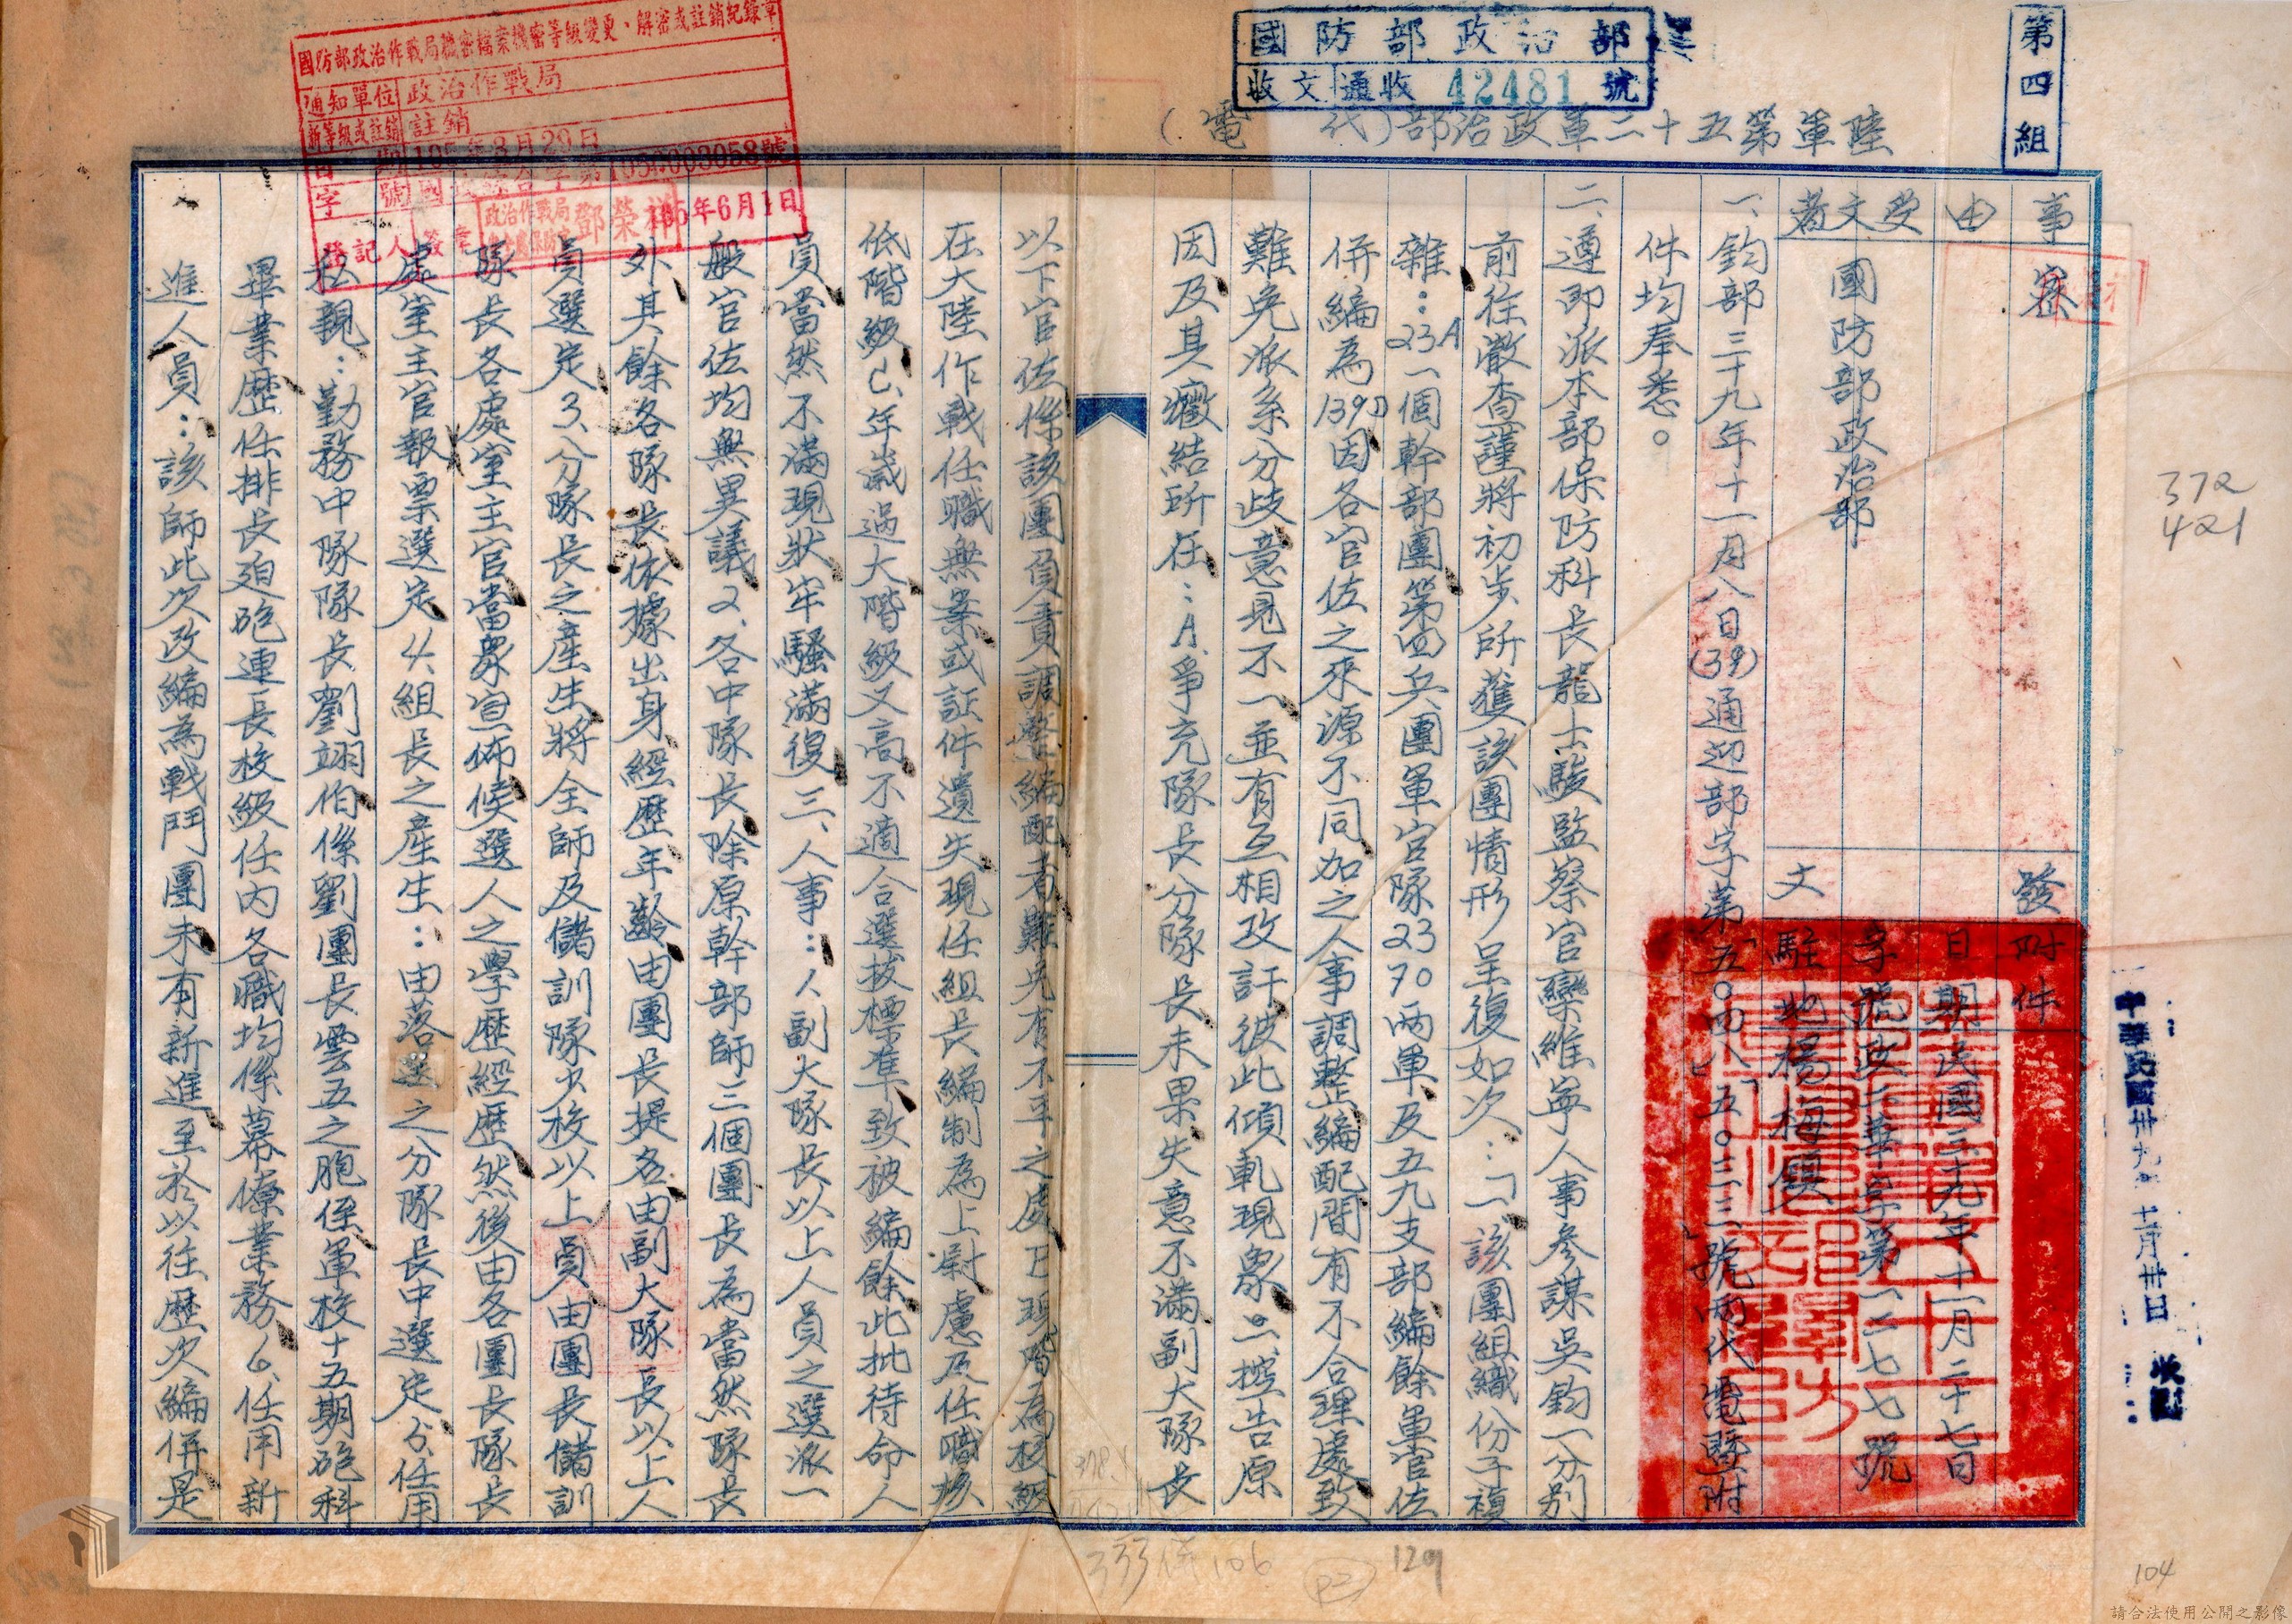 第四組
國防部政治部
收文 通收 42481 號
陸軍第五十二軍政治部（代電）
國防部政治作戰局機密檔案機密等級變更、解密或註銷紀錄章
通知單位 政治作戰局
新等級或註銷 註銷
日期 105年3月29日
字號 第1050003058號
登記人簽章
政治作戰局 鄧榮祥 105年6月1日
事由 密
受文者 國防部政治部
附件
發文
日期 民國三十九年十一月二十七日
字號 政二華字第一二七七號
駐地 楊梅鎮
中華民國卅九年十一月卅日 收到
一、鈞部三十九年十一月八日(39)通迎部字第「五〇四八」「五〇三三」號兩代電暨附
件均奉悉。
二、遵即派本部保防科長龍士駿監察官欒維寧人事參謀吳鈞一分別
前往澈查謹將初步所獲該團情形呈復如次：「一該團組織份子複
雜：23A一個幹部團第四兵團軍官隊2370兩軍及五九支部編餘軍官佐
併編為139D因各官佐之來源不同加之人事調整編配間有不合理處致
難免派系分歧意見不一並有互相攻訐彼此傾軋現象二控告原
因及其癥結所在：A爭充隊長分隊長未果失意不滿副大隊長
以下官佐係該團負責調整編配者難免有不平之處B現階為校級
在大陸作戰任職無案或証件遺失現任組長編制為上尉慮及任職核
低階級C年歲過大階級又高不適合選拔標準致被編餘此批待命人
員當然不滿現狀牢騷滿復三、人事：1、副大隊長以上人員之選派一
般官佐均無異議2、各中隊長除原幹部師三個團長為當然隊長
外其餘各隊長依據出身經歷年齡由團長提名由副大隊長以上人
員選定3、分隊長之產生將全師及儲訓隊少校以上員由團長儲訓
隊長各處室主官當眾宣佈候選人之學歷經歷然後由各團長隊長
處室主官報票選定4、組長之產生：由落選之分隊長中選定5、任用
私親：勤務中隊隊長劉翊伯係劉團長雲五之胞侄軍校十五期砲科
畢業歷任排長迫砲連長校級任內各職均係幕僚業務6、任用新
進人員：該師此次改編為戰鬥團未有新進至於以往歷次編併是
372
421
333 106
P2
129
104
請合法使用公開之影像